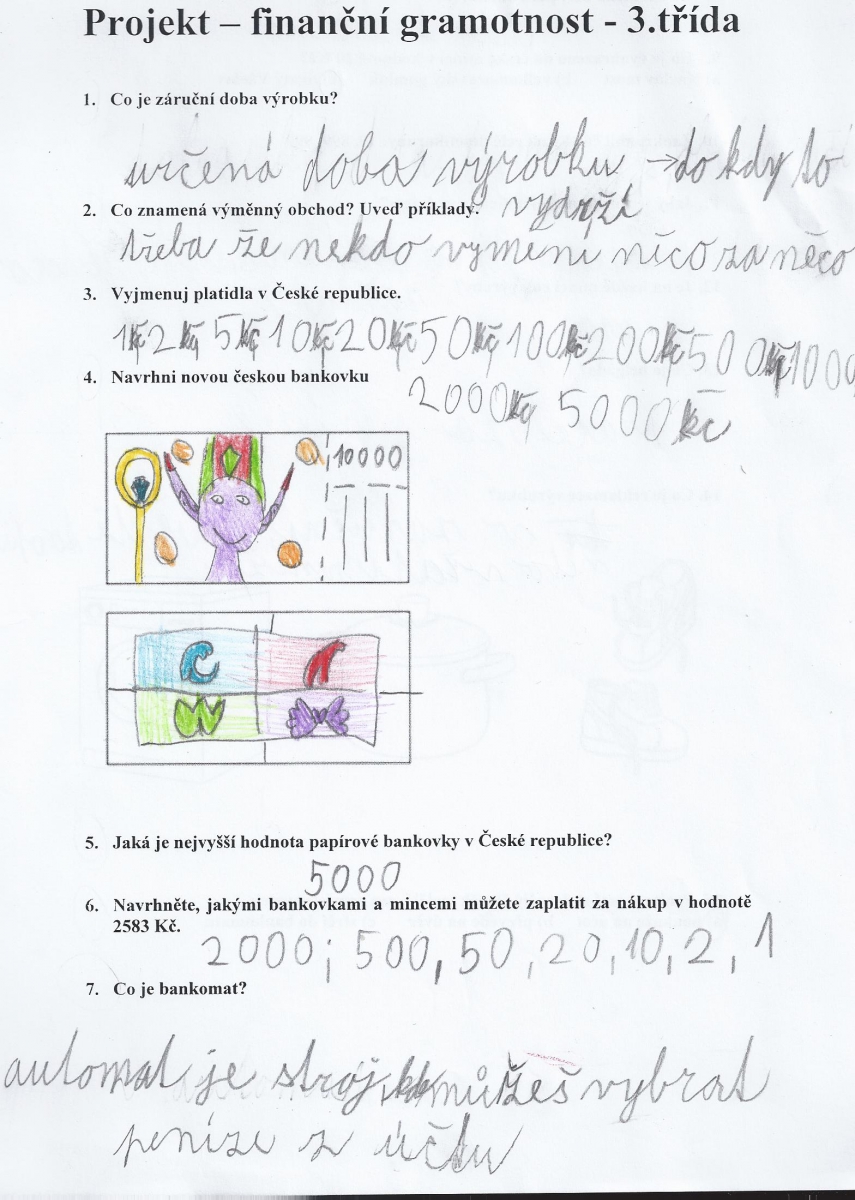 Projekt – finanční gramotnost - 3.třída
1. Co je záruční doba výrobku?
určená doba výrobku → do kdy to
vydrží
2. Co znamená výměnný obchod? Uveď příklady.
třeba že nekdo vymění něco za něco
3. Vyjmenuj platidla v České republice.
1Kč 2Kč 5Kč 10Kč 20Kč 50Kč 100Kč 200Kč 500Kč 1000
2000Kč 5000Kč
4. Navrhni novou českou bankovku
10000
5. Jaká je nejvyšší hodnota papírové bankovky v České republice?
5000
6. Navrhněte, jakými bankovkami a mincemi můžete zaplatit za nákup v hodnotě
2583 Kč.
2000; 500, 50, 20, 10, 2, 1
7. Co je bankomat?
automat je stroj kde můžeš vybrat
peníze z účtu